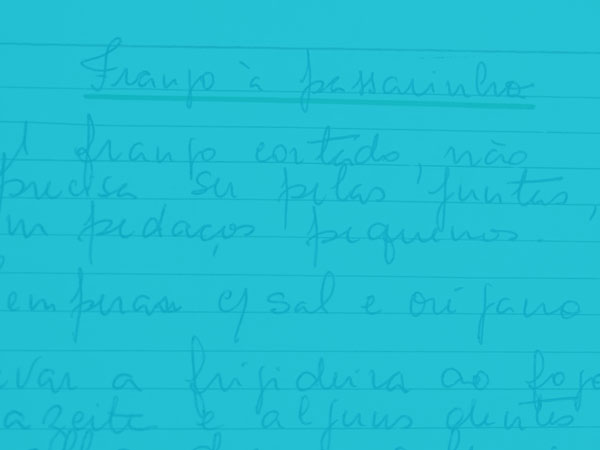 Frango à passarinho
1 frango cortado, não
precisa ser pelas juntas,
em pedaços pequenos.
Temperar c/ sal e orégano
levar a frigideira ao fogo
azeite e alguns dentes